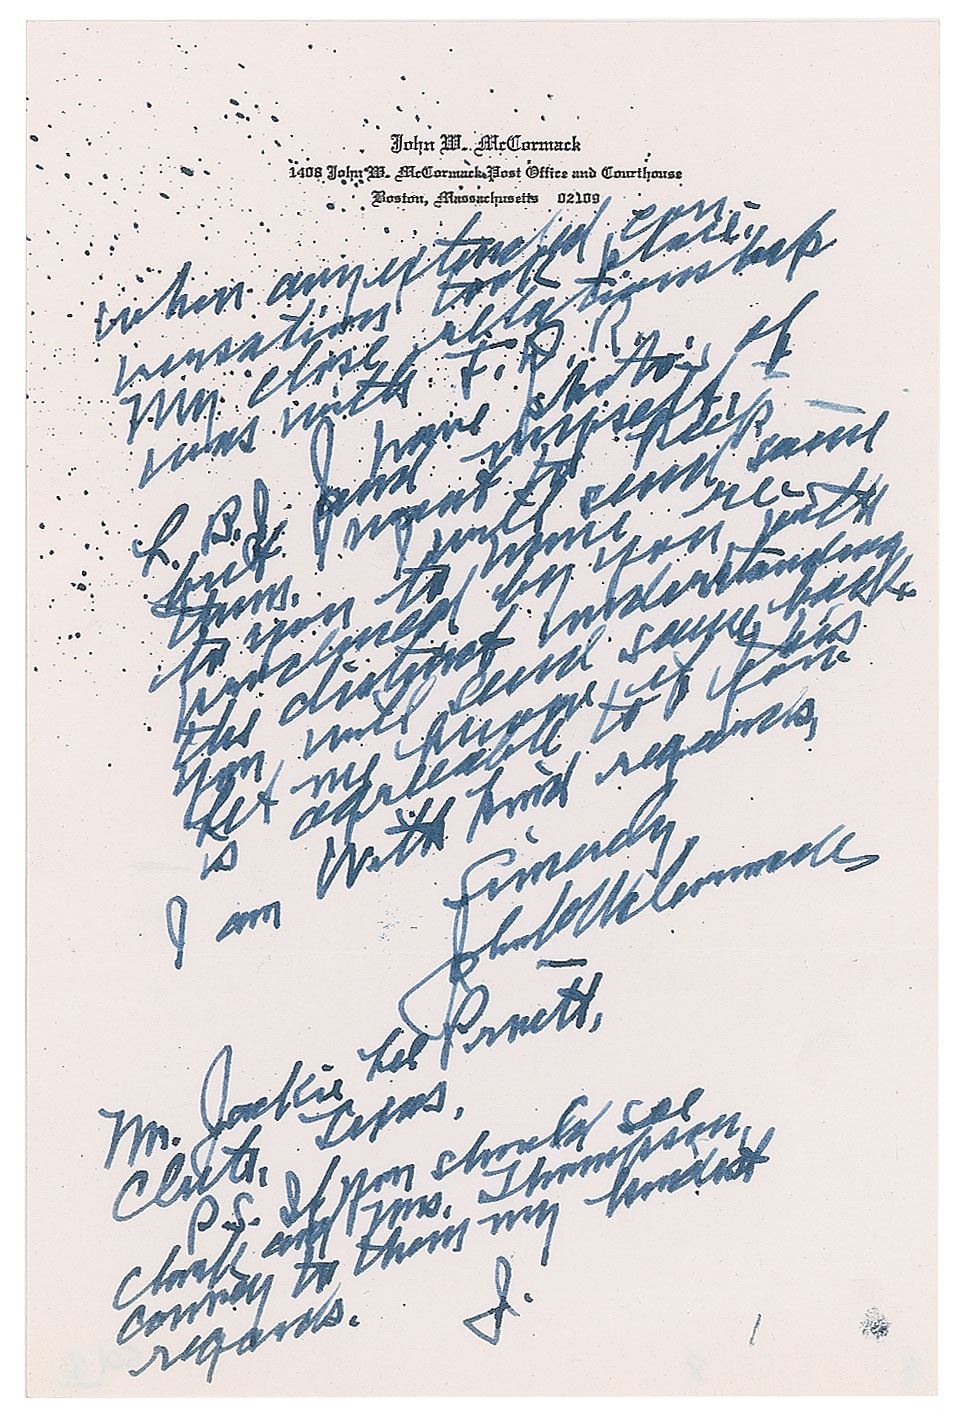 John W. McCormack
1408 John W. McCormack Post Office and Courthouse
Boston, Massachusetts 02109
when any extended con-
versation took place.
My close relationship
was with F.D.R.
I have photos of
L.B.J. and myself,
but I want to keep
them. I will send same
to you to have re-
produced by you with
the distinct understanding
you will send same back.
Let me know if this
is agreeable to you.
With kind regards,
I am
Sincerely
John W McCormack
Mr. Jackie Lee Pruett,
Clute, Texas.
P.S. If you should see
Clark and Mrs. Thompson,
convey to them my kindest
regards. J.